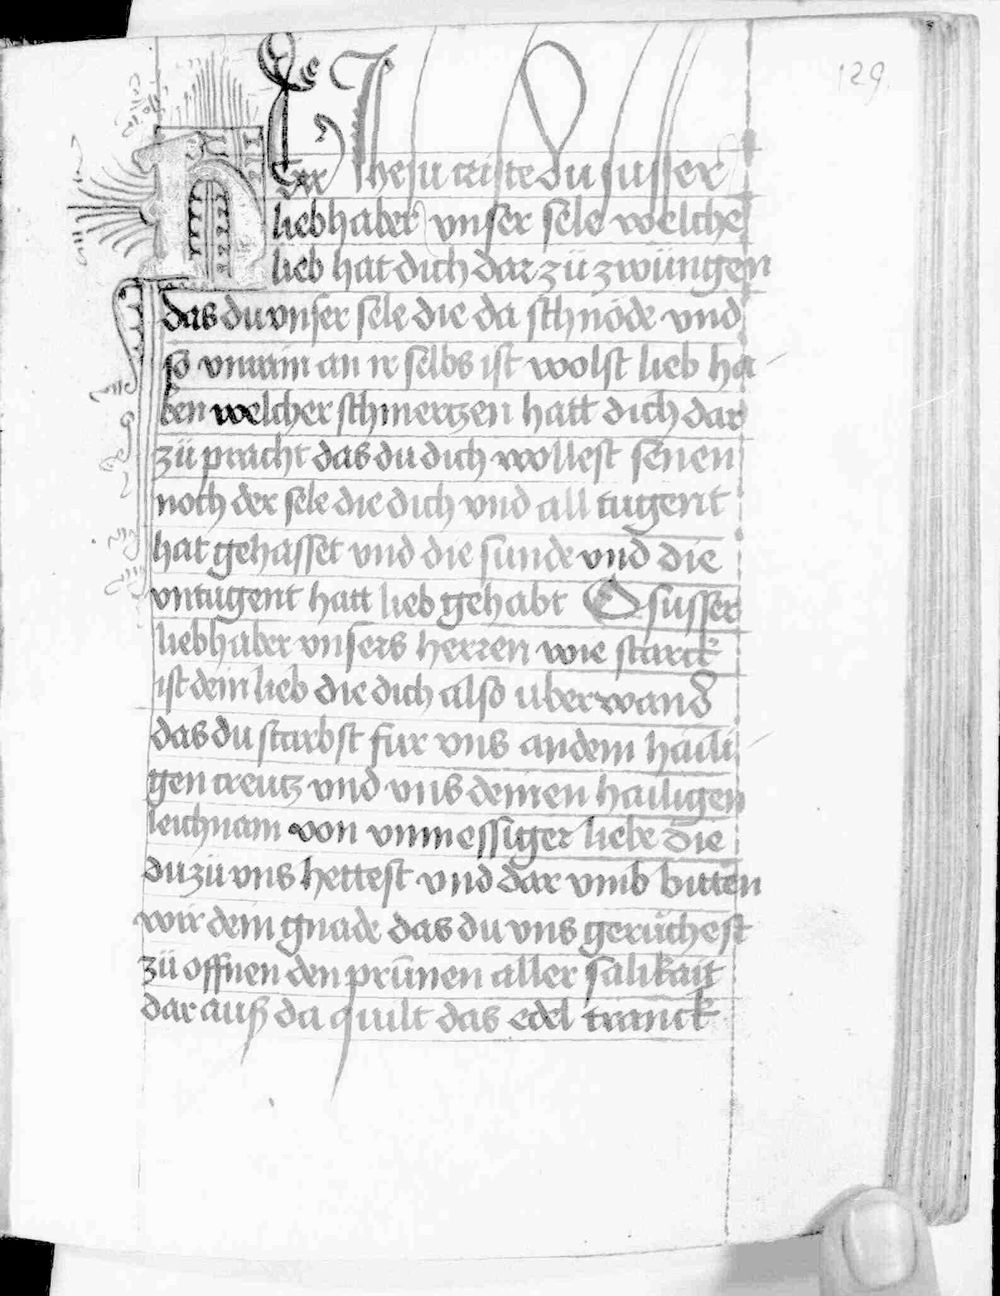 129.
Herr Jhesu criste du susser
liebhaber vnser sele welche
lieb hat dich dar zü zwüngen
das du vnser sele die da schnöde vnd
so vnrain an ir selbs ist wolst lieb ha
ben welcher schmertzen hatt dich dar
zü pracht das du dich wollest senen
noch der sele die dich vnd all tugent
hat gehasset vnd die sunde vnd die
vntugent hatt lieb gehabt O susser
liebhaber vnsers herren wie starck
ist dein lieb die dich also uberwand
das du starbst fur vns an dem haili
gen creutz vnd vns deinen hailigen
leichnam von vnmessiger liebe die
du zü vns hettest vnd dar vmb bitten
wir dein gnade das du vns gerüchest
zü offnen den prūnen aller sälikait
dar auß da quilt das edel tranck